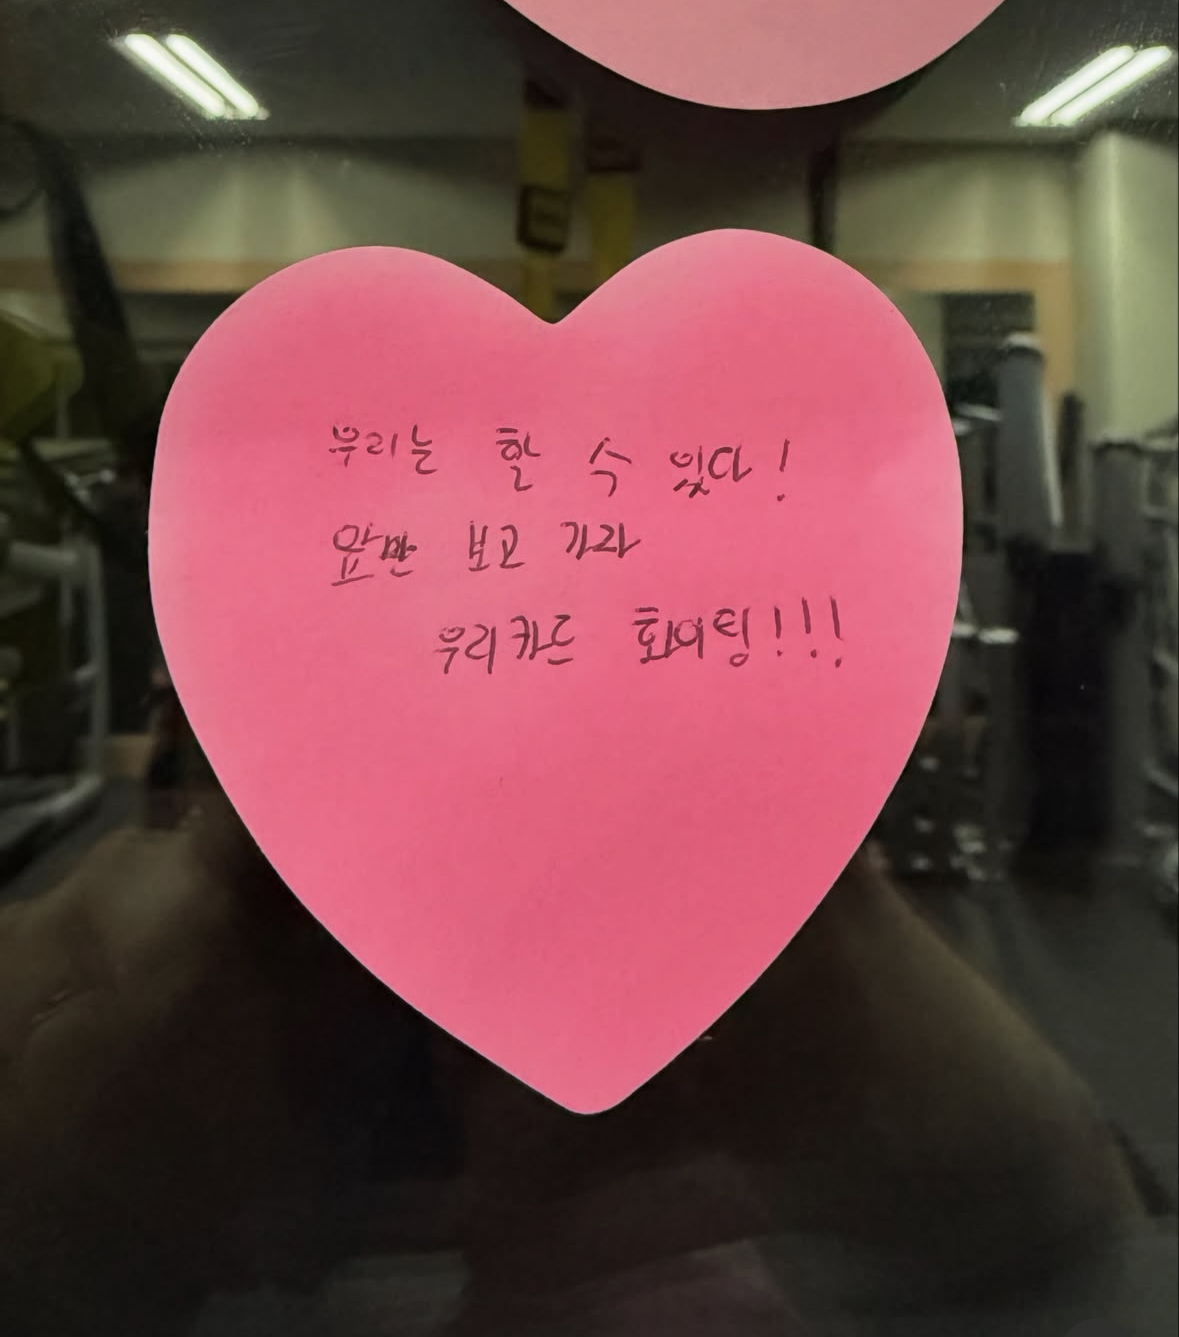 우리는 할 수 있다!
앞만 보고 가자
우리카드 화이팅!!!